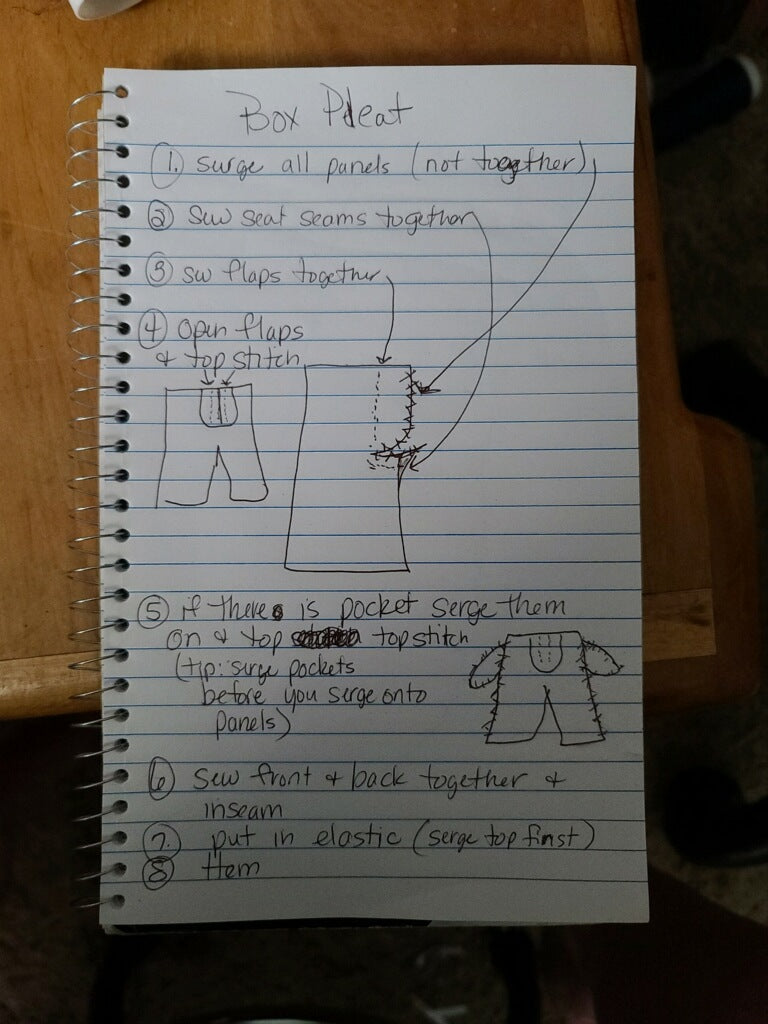 Box Pleat
1. surge all panels (not together)
2 Sew seat seams together
3 sw flaps together
4 Open flaps
& top stitch
5 if there is pocket serge them
on & top topstitch
(tip: surge pockets
before you serge onto
panels)
6 sew front & back together &
inseam
7. put in elastic (serge top first)
8 Hem